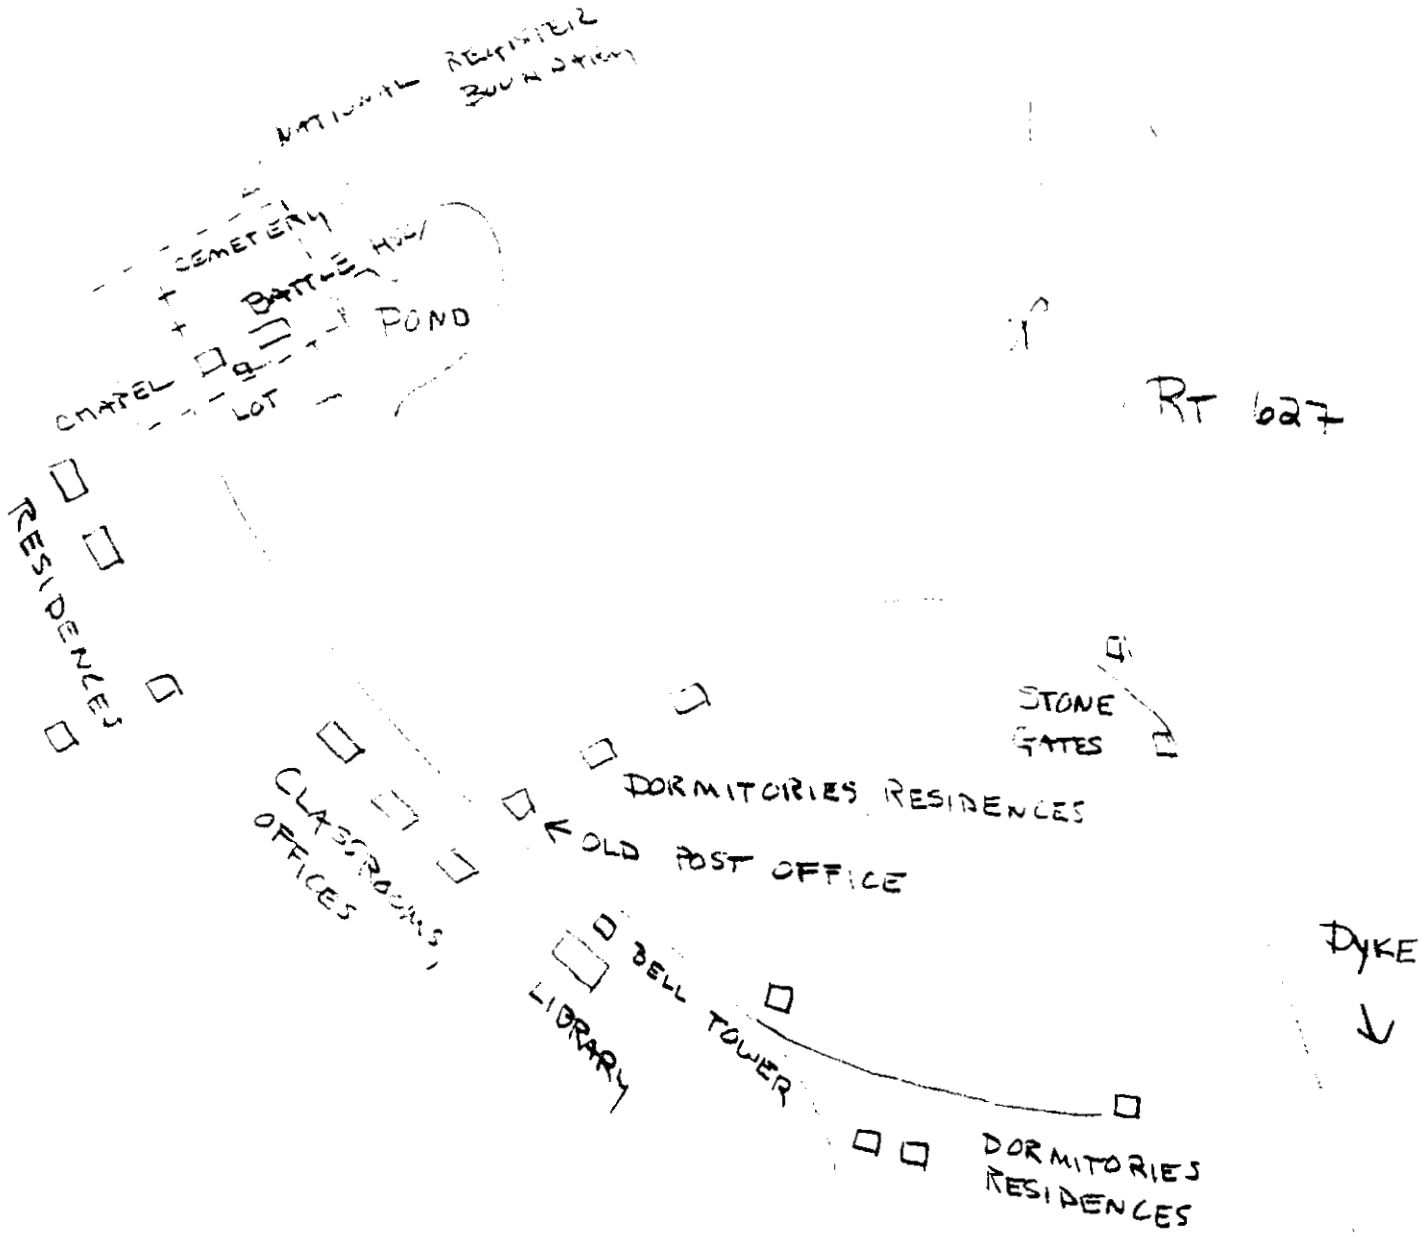 NATIONAL REGISTER
BOUNDARY
CEMETERY
BATTLE
POND
CHAPEL
LOT
RT 627
RESIDENCES
STONE
GATES
DORMITORIES RESIDENCES
← OLD POST OFFICE
CLASSROOMS,
OFFICES
BELL TOWER
LIBRARY
DYKE
↓
DORMITORIES
RESIDENCES